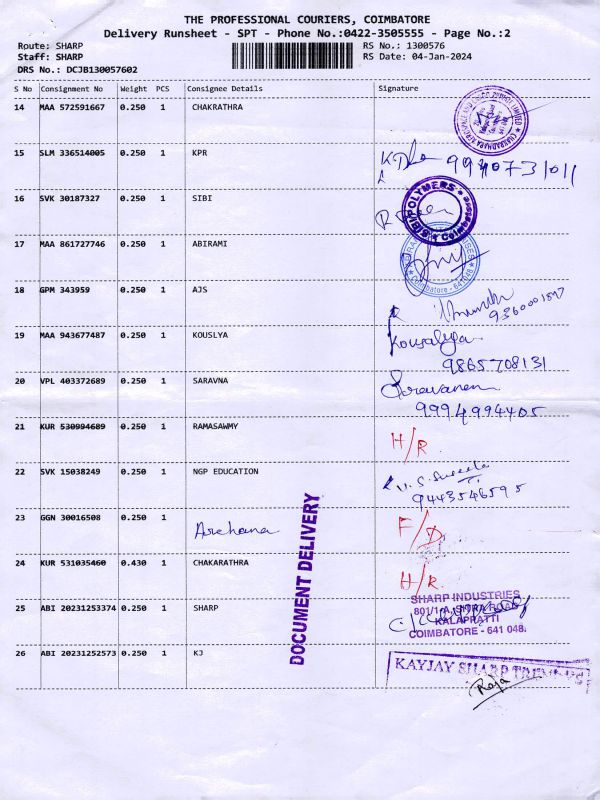 THE PROFESSIONAL COURIERS, COIMBATORE
Delivery Runsheet - SPT - Phone No.:0422-3505555 - Page No.:2
Route: SHARP RS No.: 1300576
Staff: SHARP RS Date: 04-Jan-2024
DRS No.: DCJB130057602
S No Consignment No Weight PCS Consignee Details Signature
14 MAA 572591667 0.250 1 CHAKRATHRA
15 SLM 336514005 0.250 1 KPR
16 SVK 30187327 0.250 1 SIBI
SIBI POLYMERS Coimbatore
17 MAA 861727746 0.250 1 ABIRAMI
Coimbatore - 641 048
18 GPM 343959 0.250 1 AJS
9360001897
19 MAA 943677487 0.250 1 KOUSLYA Kousalya
9865708131
20 VPL 403372689 0.250 1 SARAVNA Saravanan
9994994405
21 KUR 530994689 0.250 1 RAMASAWMY H/R.
22 SVK 15038249 0.250 1 NGP EDUCATION
9443546595
23 GGN 30016508 0.250 1 Archana F/D.
24 KUR 531035460 0.430 1 CHAKARATHRA H/R.
DOCUMENT DELIVERY
25 ABI 20231253374 0.250 1 SHARP
SHARP INDUSTRIES
801/1-A, ROAD
KALAPRATTI
COIMBATORE - 641 048.
26 ABI 20231252573 0.250 1 KJ
KAYJAY SHARP TRENDYS
Raja